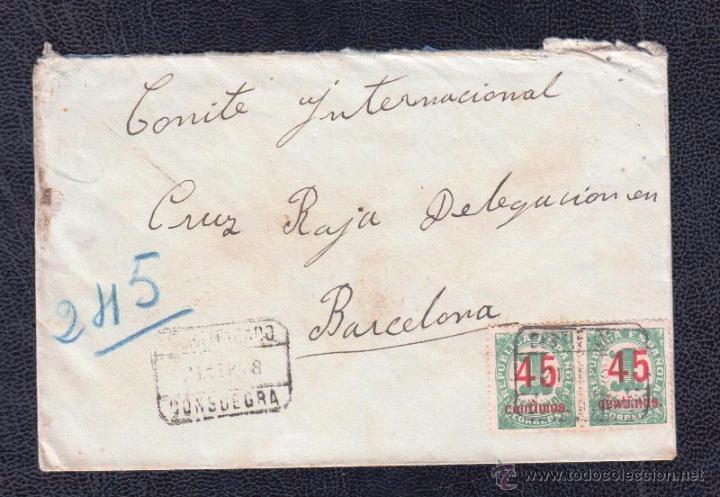 Comite Internacional
Cruz Roja Delegacion en
Barcelona
245
CERTIFICADO
CONSUEGRA
REPUBLICA ESPAÑOLA
45
centimos.
CORREOS
REPUBLICA ESPAÑOLA
45
centimos.
CORREOS
todocoleccion.net